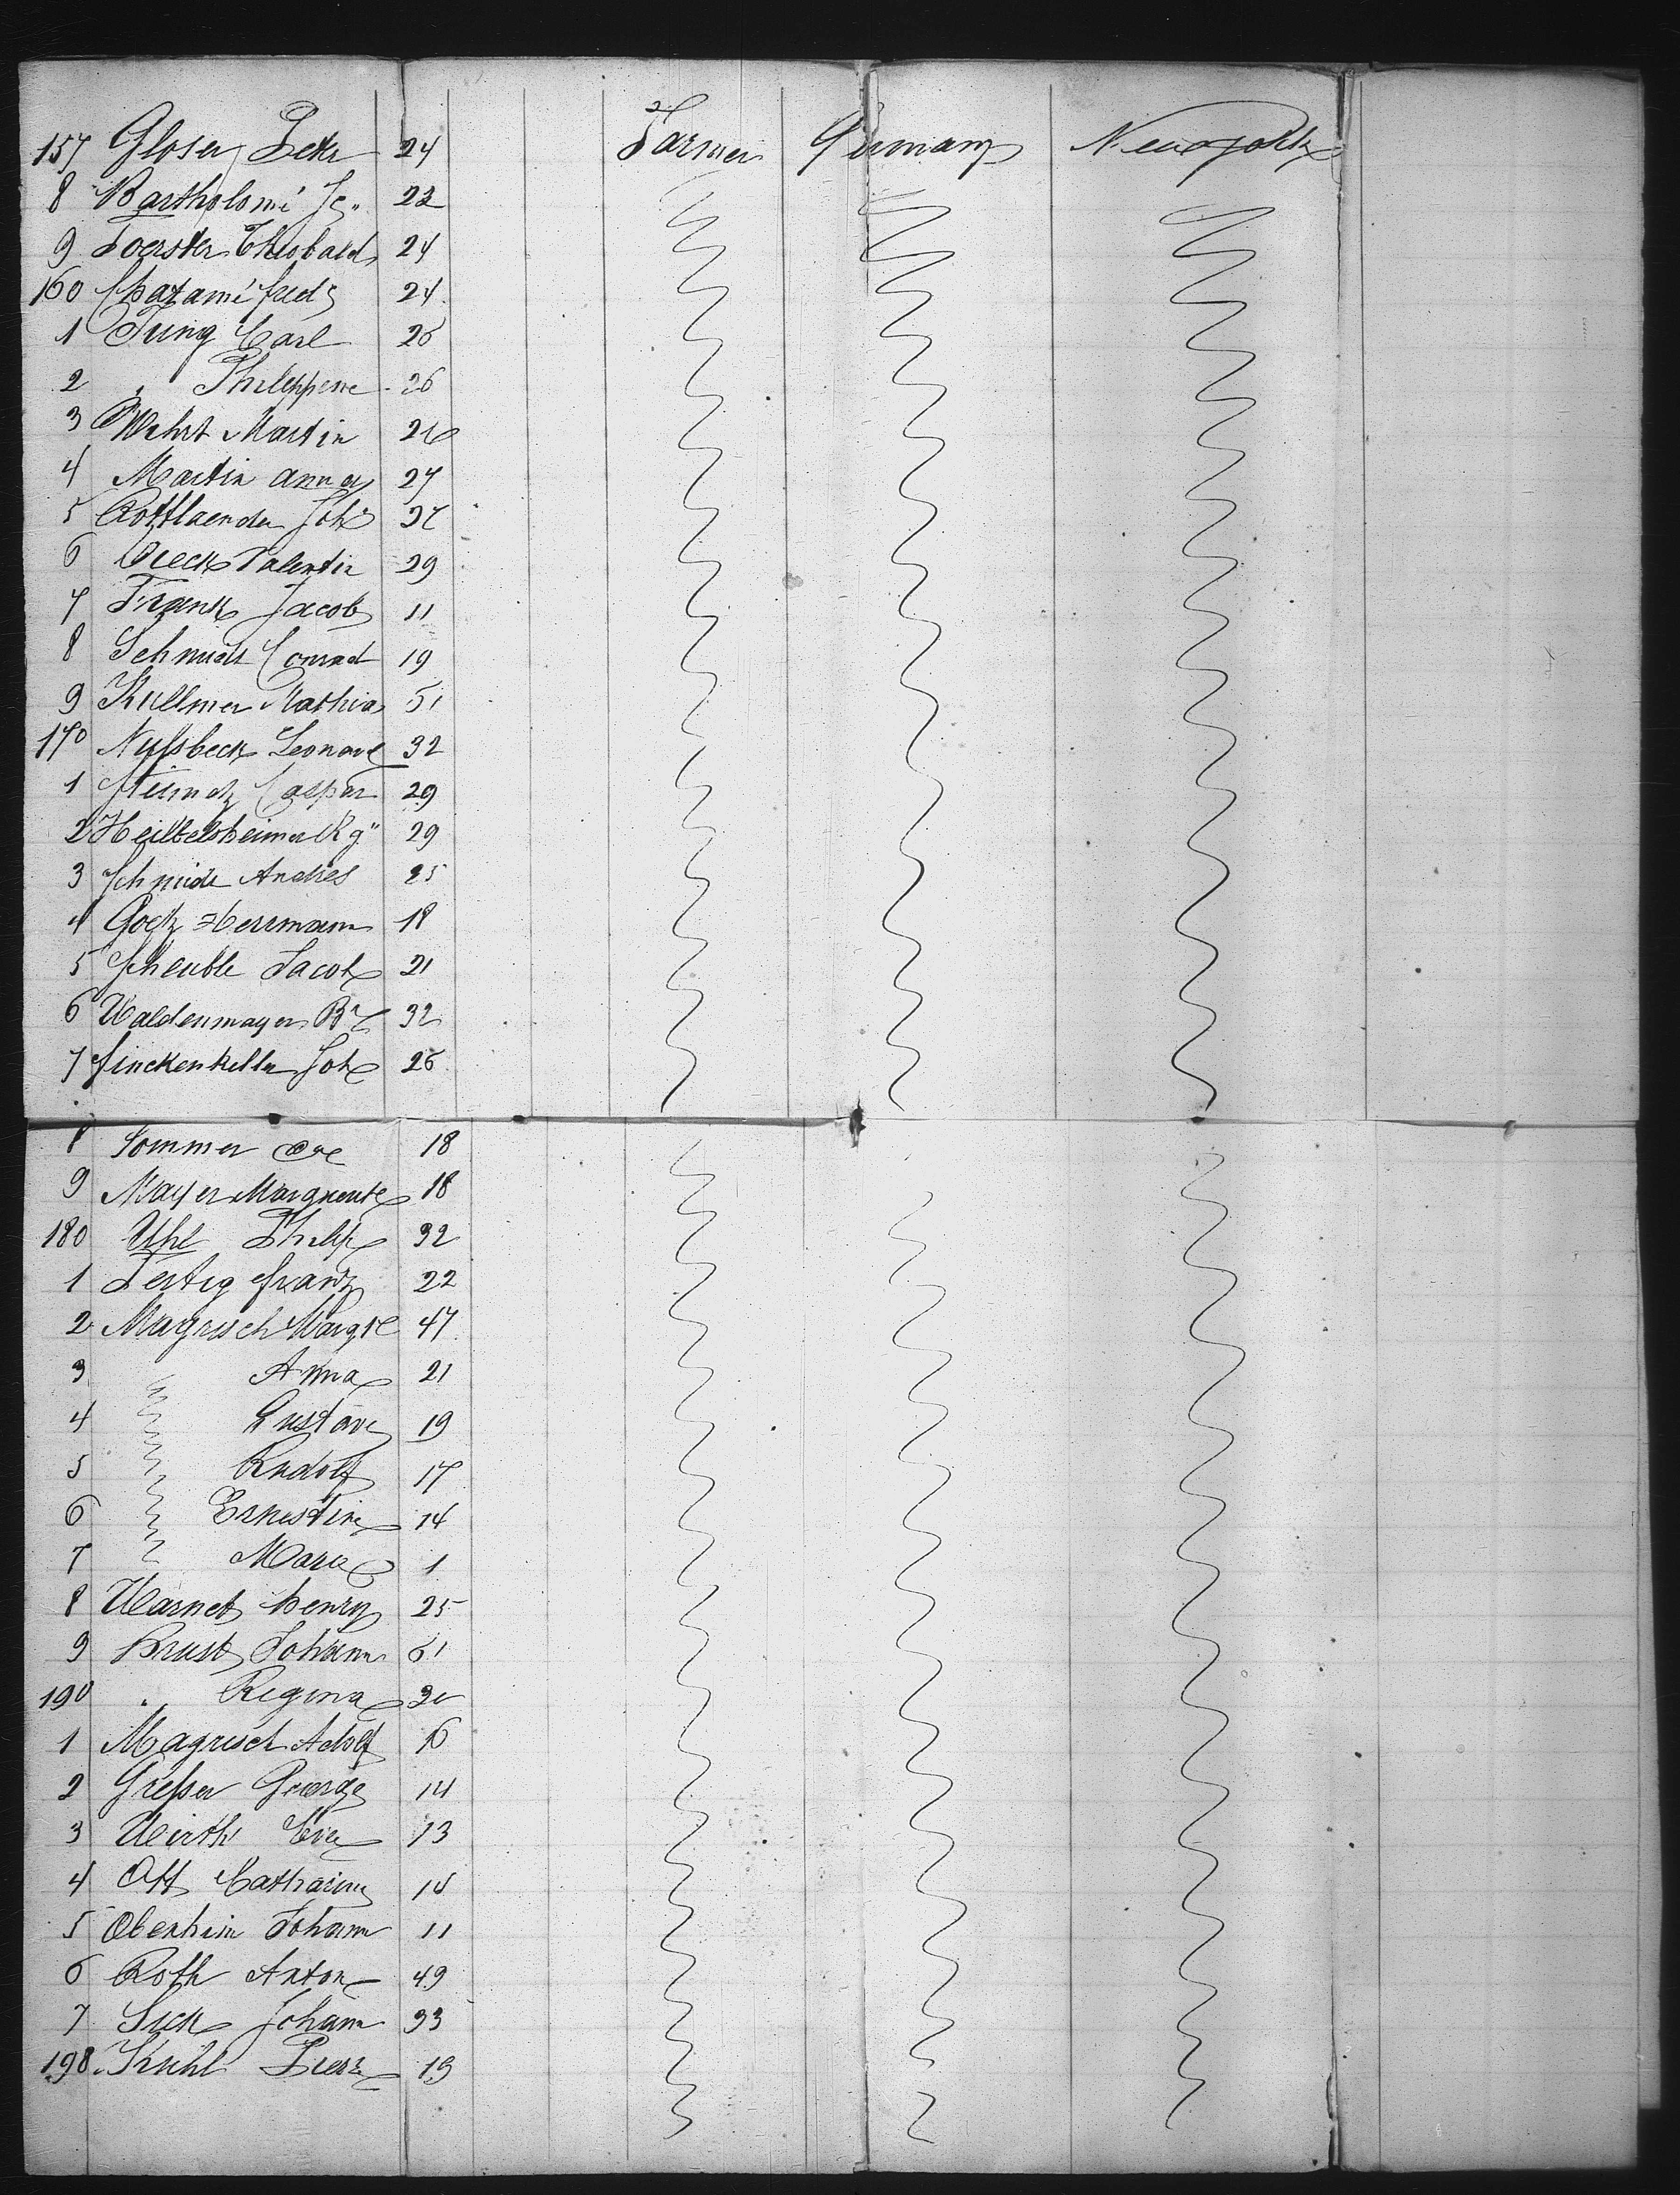 157 Gloser Peter 24 Farmer Germany New York
8 Bartholomé Je" 22
9 Foerster Theobald 24
160 Chazamé fred 24
1 Jung Carl 26
2 " Philippene 26
3 Wehrt Martin 26
4 Martin anna 27
5 Rottlaender Joh 37
6 Valentin 29
7 Frank Jacob 11
8 Schmidt Conrad 19
9 Kullmer Mathia 51
170 Nussbeck Leonard 32
1 Steimetz Caspar 29
2 Heilbelsheimer 29
3 Schmidt Andres 25
4 Goetz Herrmann 18
5 Scheuble Jacob 21
6 Waldenmayer 32
7 finckenkeller Joh 26
8 Sommer 18
9 Mayer Marguerite 18
180 Uhl Philip 32
1 Fertig franz 22
2 Magrisch Margte 47
3 " Anna 21
4 " Gustave 19
5 " Rudolf 17
6 " Ernestine 14
7 " Marie 1
8 Warnet henry 25
9 Brust Johann 61
190 " Regina
1 Magrisch Adolf 16
2 Gresser George 14
3 Wirth Eva 13
4 Ott Catharina 14
5 Oberheim Johann 11
6 Roth Anton 49
7 Sick Johann 33
198 Kuhl 19